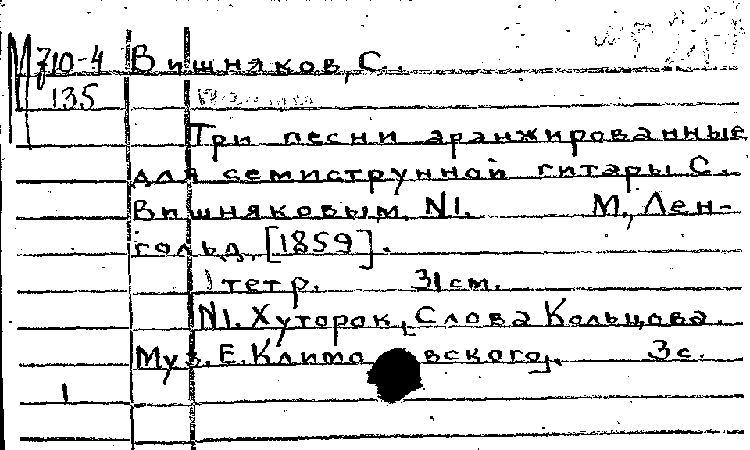 М 710-4 Вишняков, С.
135
Три песни аранжированные
для семиструнной гитары С.
Вишняковым, N1. М., Лен-
гольд, [1859].
1 тетр. 31 см.
N1. Хуторок, [Слова Кольцова.
Муз. Е. Климовского]. 3 с.
1